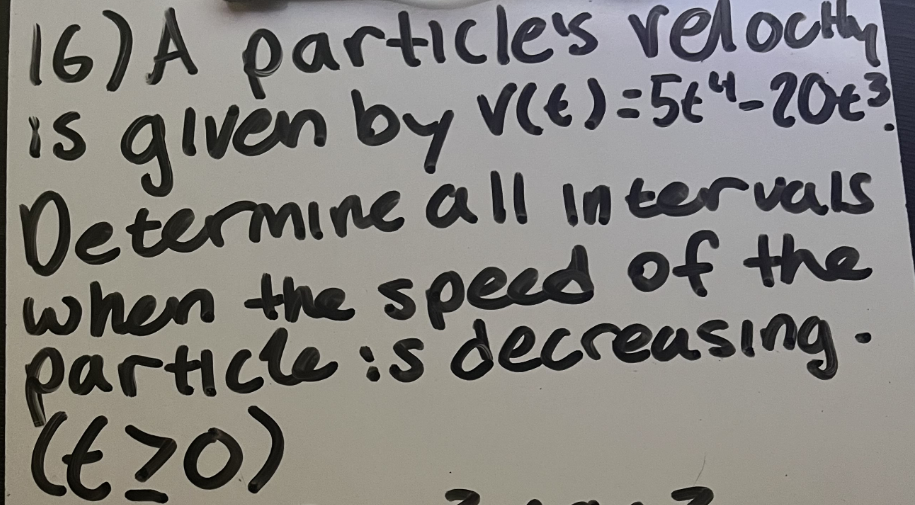 16) A particle's velocity
is given by v(t)=5t⁴-20t³.
Determine all intervals
when the speed of the
particle is decreasing.
(t≥0)